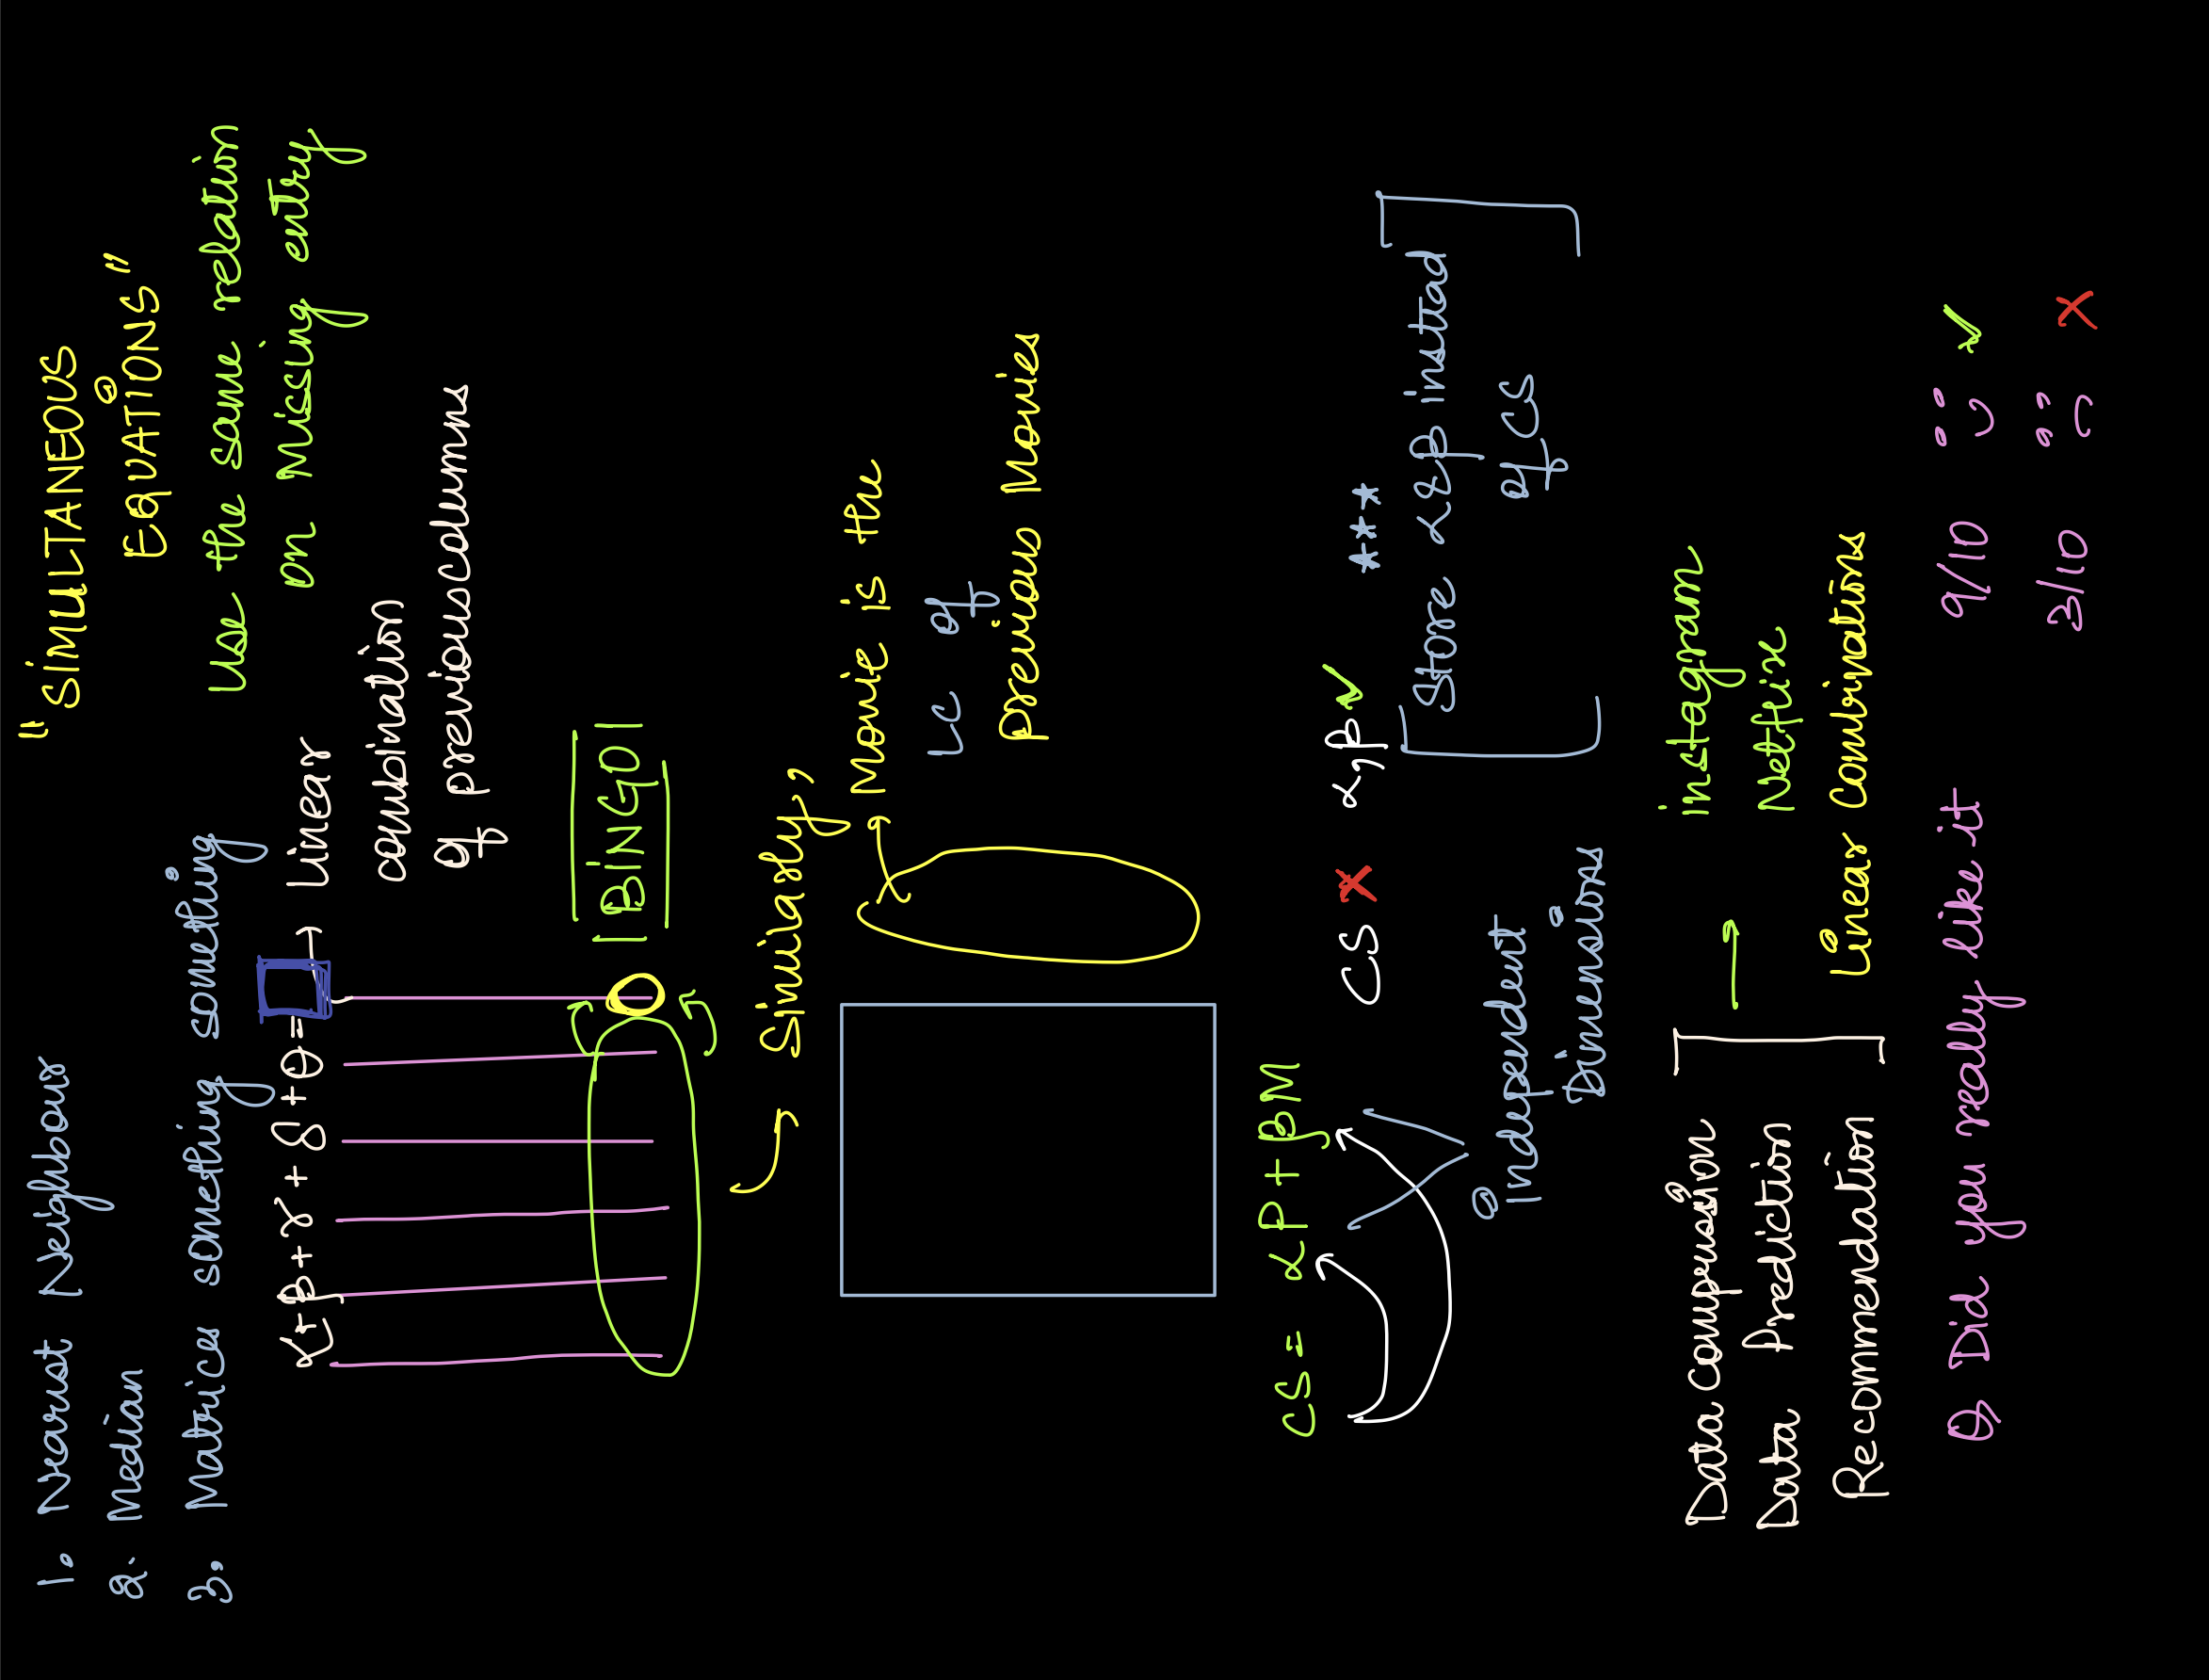 1. Nearest Neighbour
2. Median
3. Matrices something something
"SIMULTANEOUS
EQUATIONS"
Use the same relation
on Missing entry
α + β + γ + δ + θ = → Linear
combination
of previous columns
BINGO
Similarly,
Movie is the
LC of
previous Movies
CS = αP + βM
CS × α, β ✓ ***
Store α & β instead
of CS
Independent
Dimensions
Data Compression
Data Prediction
Recommendation
→ instagram
Netflix
Linear Combinations
Q Did you really like it 9/10 ✓
3/10 ×